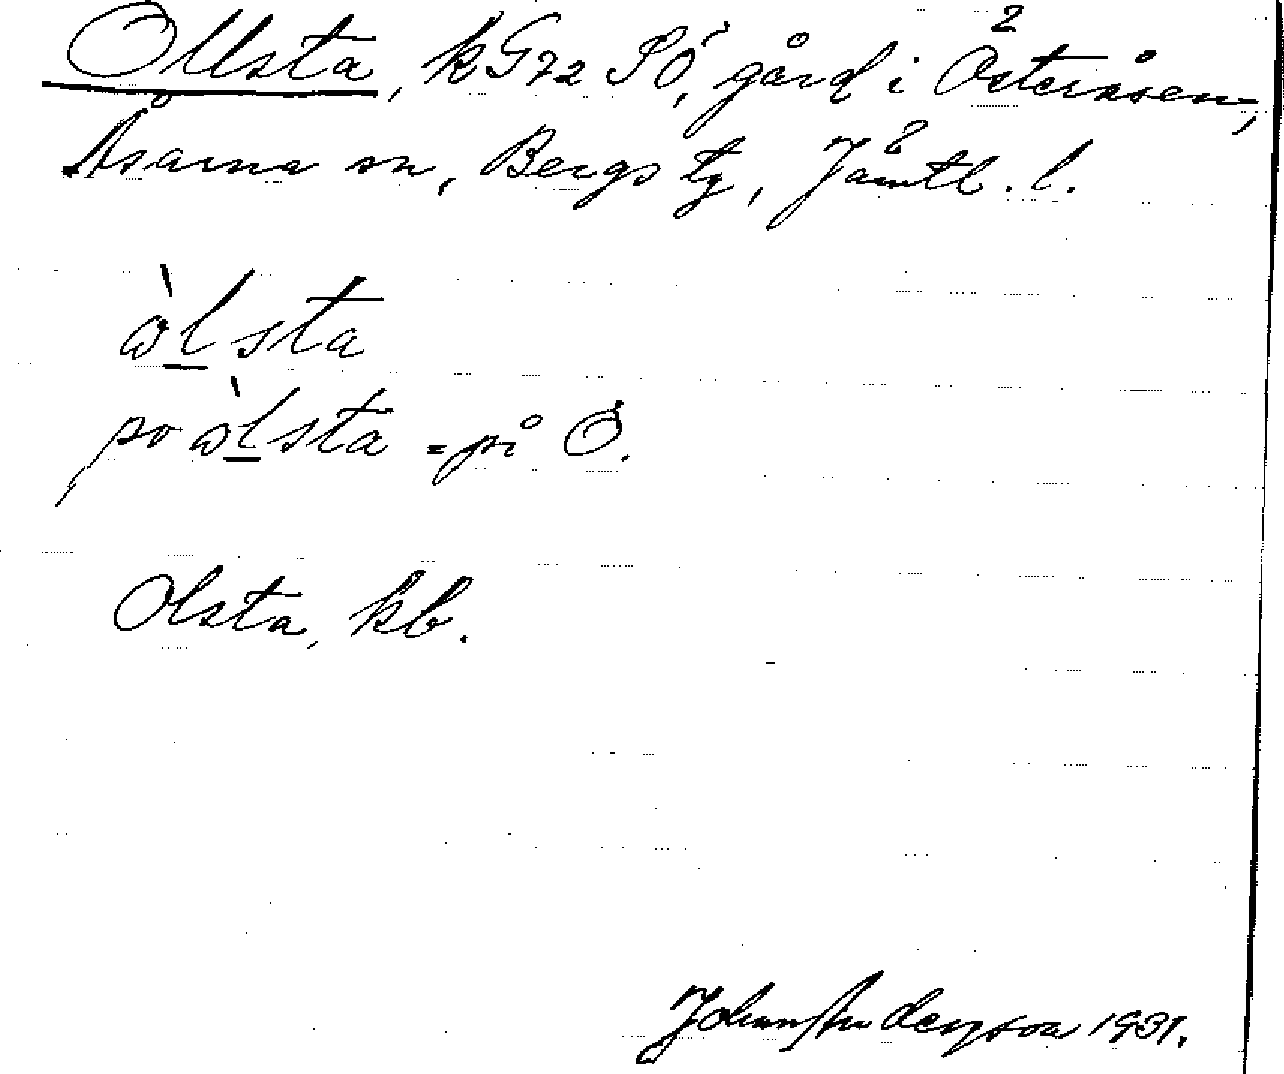 Ollsta, kG72 SÖ, gård i Österåsen,
Åsarna sn, Bergs tg, Jämtl. l.
ɷ̀lsta
po ɷ̀lsta = på O.
Olsta, kb.
Johan Anderson 1931.